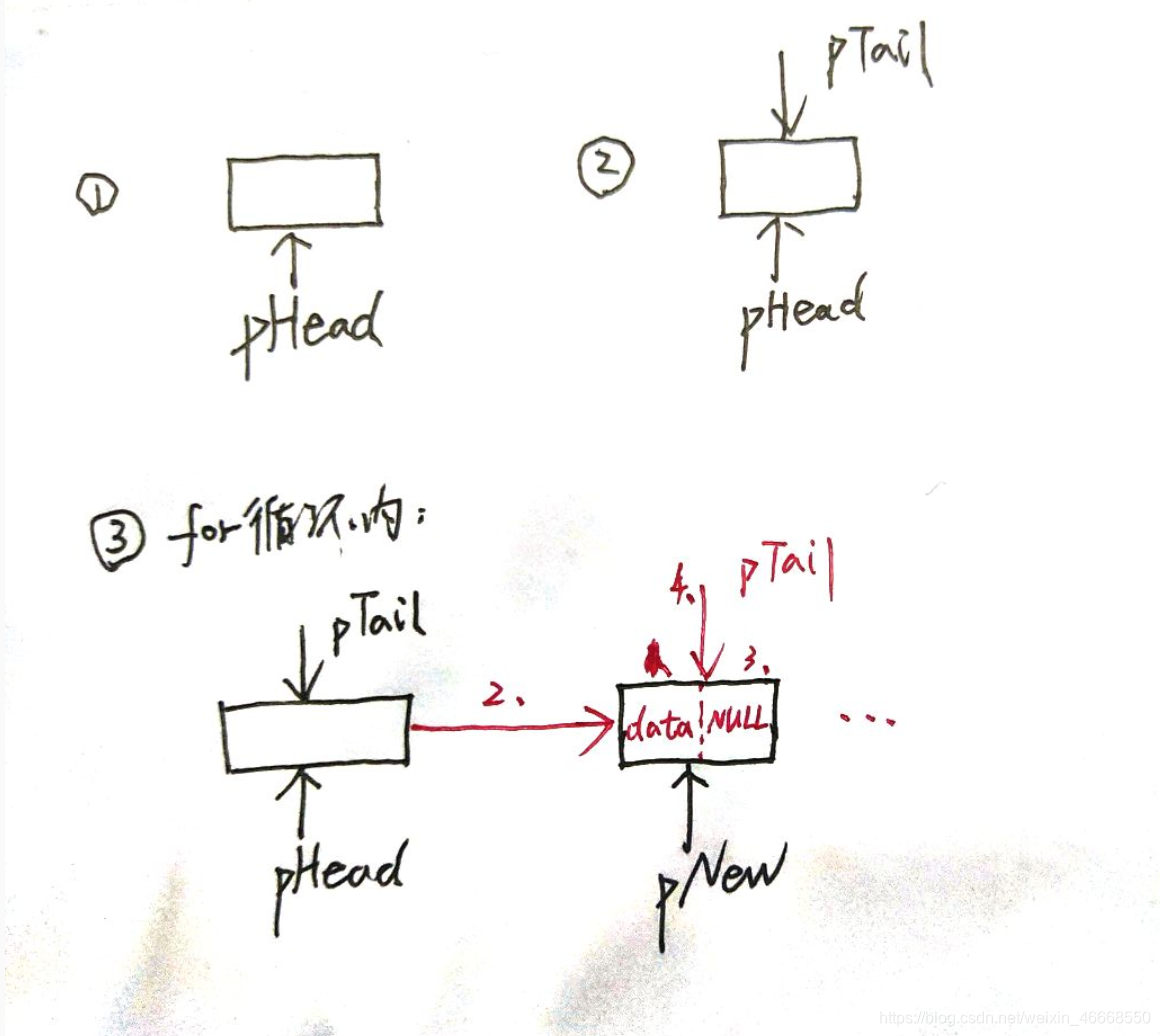 pTail
①
②
pHead
pHead
③ for循环内:
4. pTail
pTail
3.
2.
data NULL ...
pHead
pNew
https://blog.csdn.net/weixin_46668550